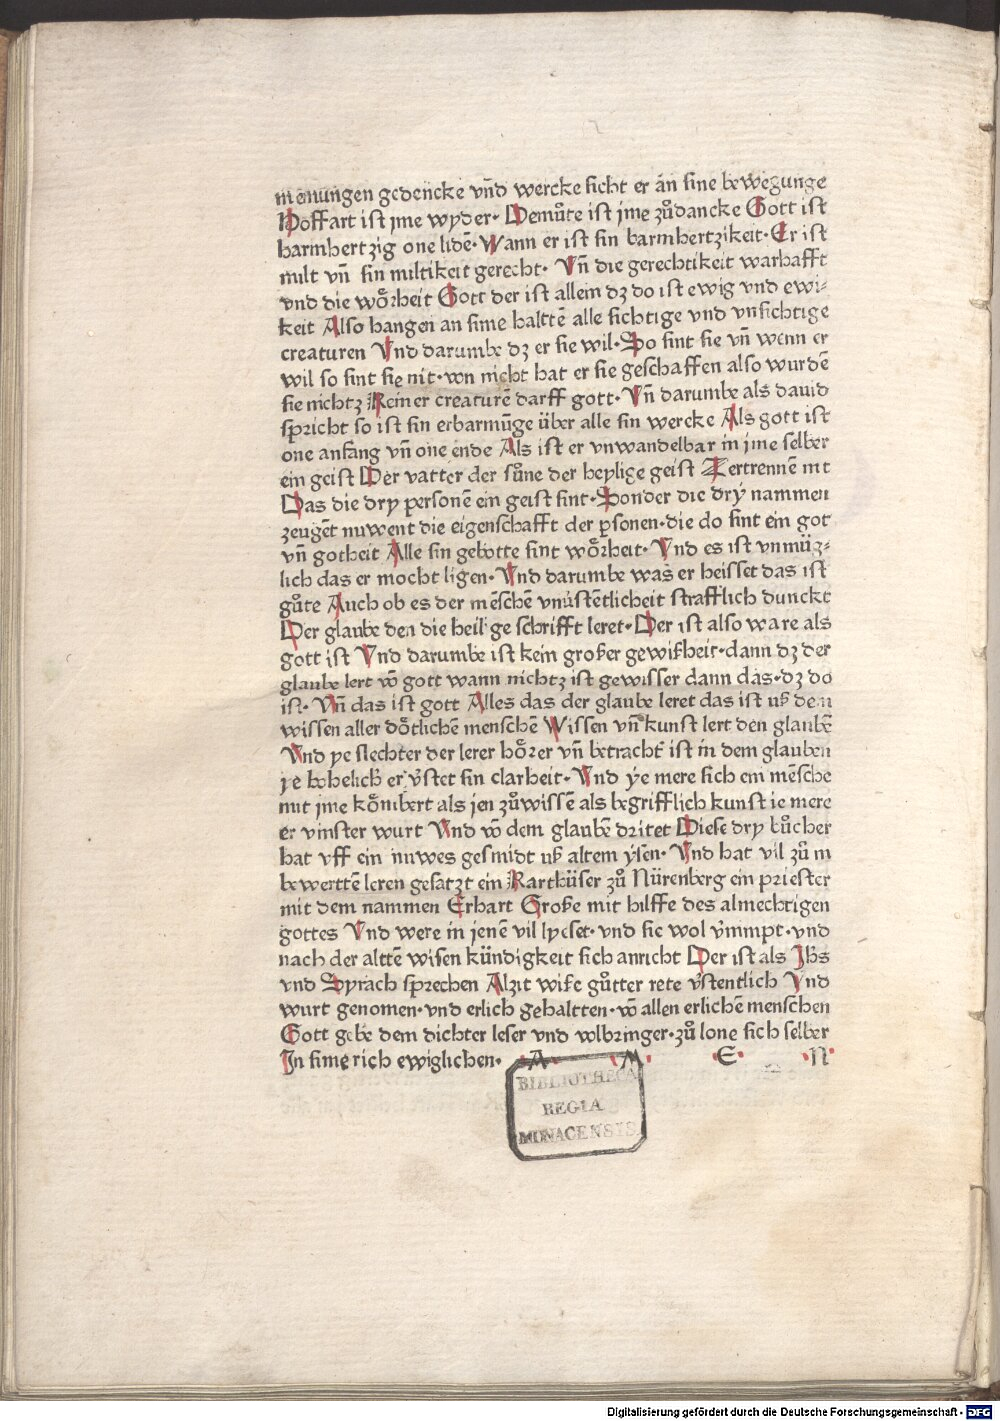 menungen gedencke vñd wercke sicht er an sine bewegunge
Hoffart ist jme wyder· Demuͦte ist jme zuͦdancke Gott ist
barmhertzig one lidē· Wann er ist sin barmhertzikeit· Er ist
milt vñ sin miltikeit gerecht· Vñ die gerechtikeit warhafft
vnd die woͤrheit Gott der ist allein dz do ist ewig vnd ewi⸗
keit Also hangen an sime halttē alle sichtige vnd vnsichtige
creaturen Vnd darumbe dz er sie wil· So sint sie vñ wenn er
wil so sint sie nit· von nicht hat er sie geschaffen also wurdē
sie nichtz Keiner creaturē darff gott· Vñ darumbe als dauid
spricht so ist sin erbarmūge über alle sin wercke Als gott ist
one anfang vñ one ende Als ist er vnwandelbar in jme selber
ein geist Der vatter der suͦne der heylige geist Zertrennē nit
Das die dry personē ein geist sint· Sonder die dry nammen
zeugēt nuwent die eigenschafft der psonen· die do sint ein got
vñ gotheit Alle sin gebotte sint woͤrheit· Vnd es ist vnmüg⸗
lich das er mocht ligen· Vnd darumbe was er heisset das ist
guͦte Auch ob es der mēschē vnūstētlicheit strafflich dunckt
Der glaube den die heilige schrifft leret· Der ist also ware als
gott ist Vnd darumbe ist kein großer gewißheit· dann dz der
glaube lert vō gott wann nichtz ist gewisser dann das· dz do
ist· Vñ das ist gott Alles das der glaube leret das ist uß dem
wissen aller doͤtlichē menschē Wissen vñ kunst lert den glaubē
Vnd ye slechter der lerer hoͤrer vñ betracht ist in dem glauben
ye hohelich er v̄stet sin clarheit· Vnd ye mere sich ein mēsche
mit jme koͤmbert als jen zuͦwissē als begrifflich kunst ie mere
er vinster wurt Vnd vō dem glaubē dritet Diese dry buͦcher
hat vff ein nuwes gesmidt uß altem ysen· Vnd hat vil zuͦ in
bewerttē leren gesatzt ein Karthüser zuͦ Nürenberg ein priester
mit dem nammen Erhart Große mit hilffe des almechtigen
gottes Vnd were in jenē vil lyeset· vnd sie wol v̄nimpt· vnd
nach der alttē wisen kündigkeit sich anricht Der ist als Jħs
vnd Syrach sprechen Alzit wiße guͦtter rete v̄stentlich Vnd
wurt genomen· vnd erlich gehaltten· vō allen erlichē menschen
Gott gebe dem dichter leser vnd volbringer· zuͦ lone sich selber
In sime rich ewiglichen· A· M· E· N·
BIBLIOTHECA
REGIA
MONACENSIS
Digitalisierung gefördert durch die Deutsche Forschungsgemeinschaft - DFG